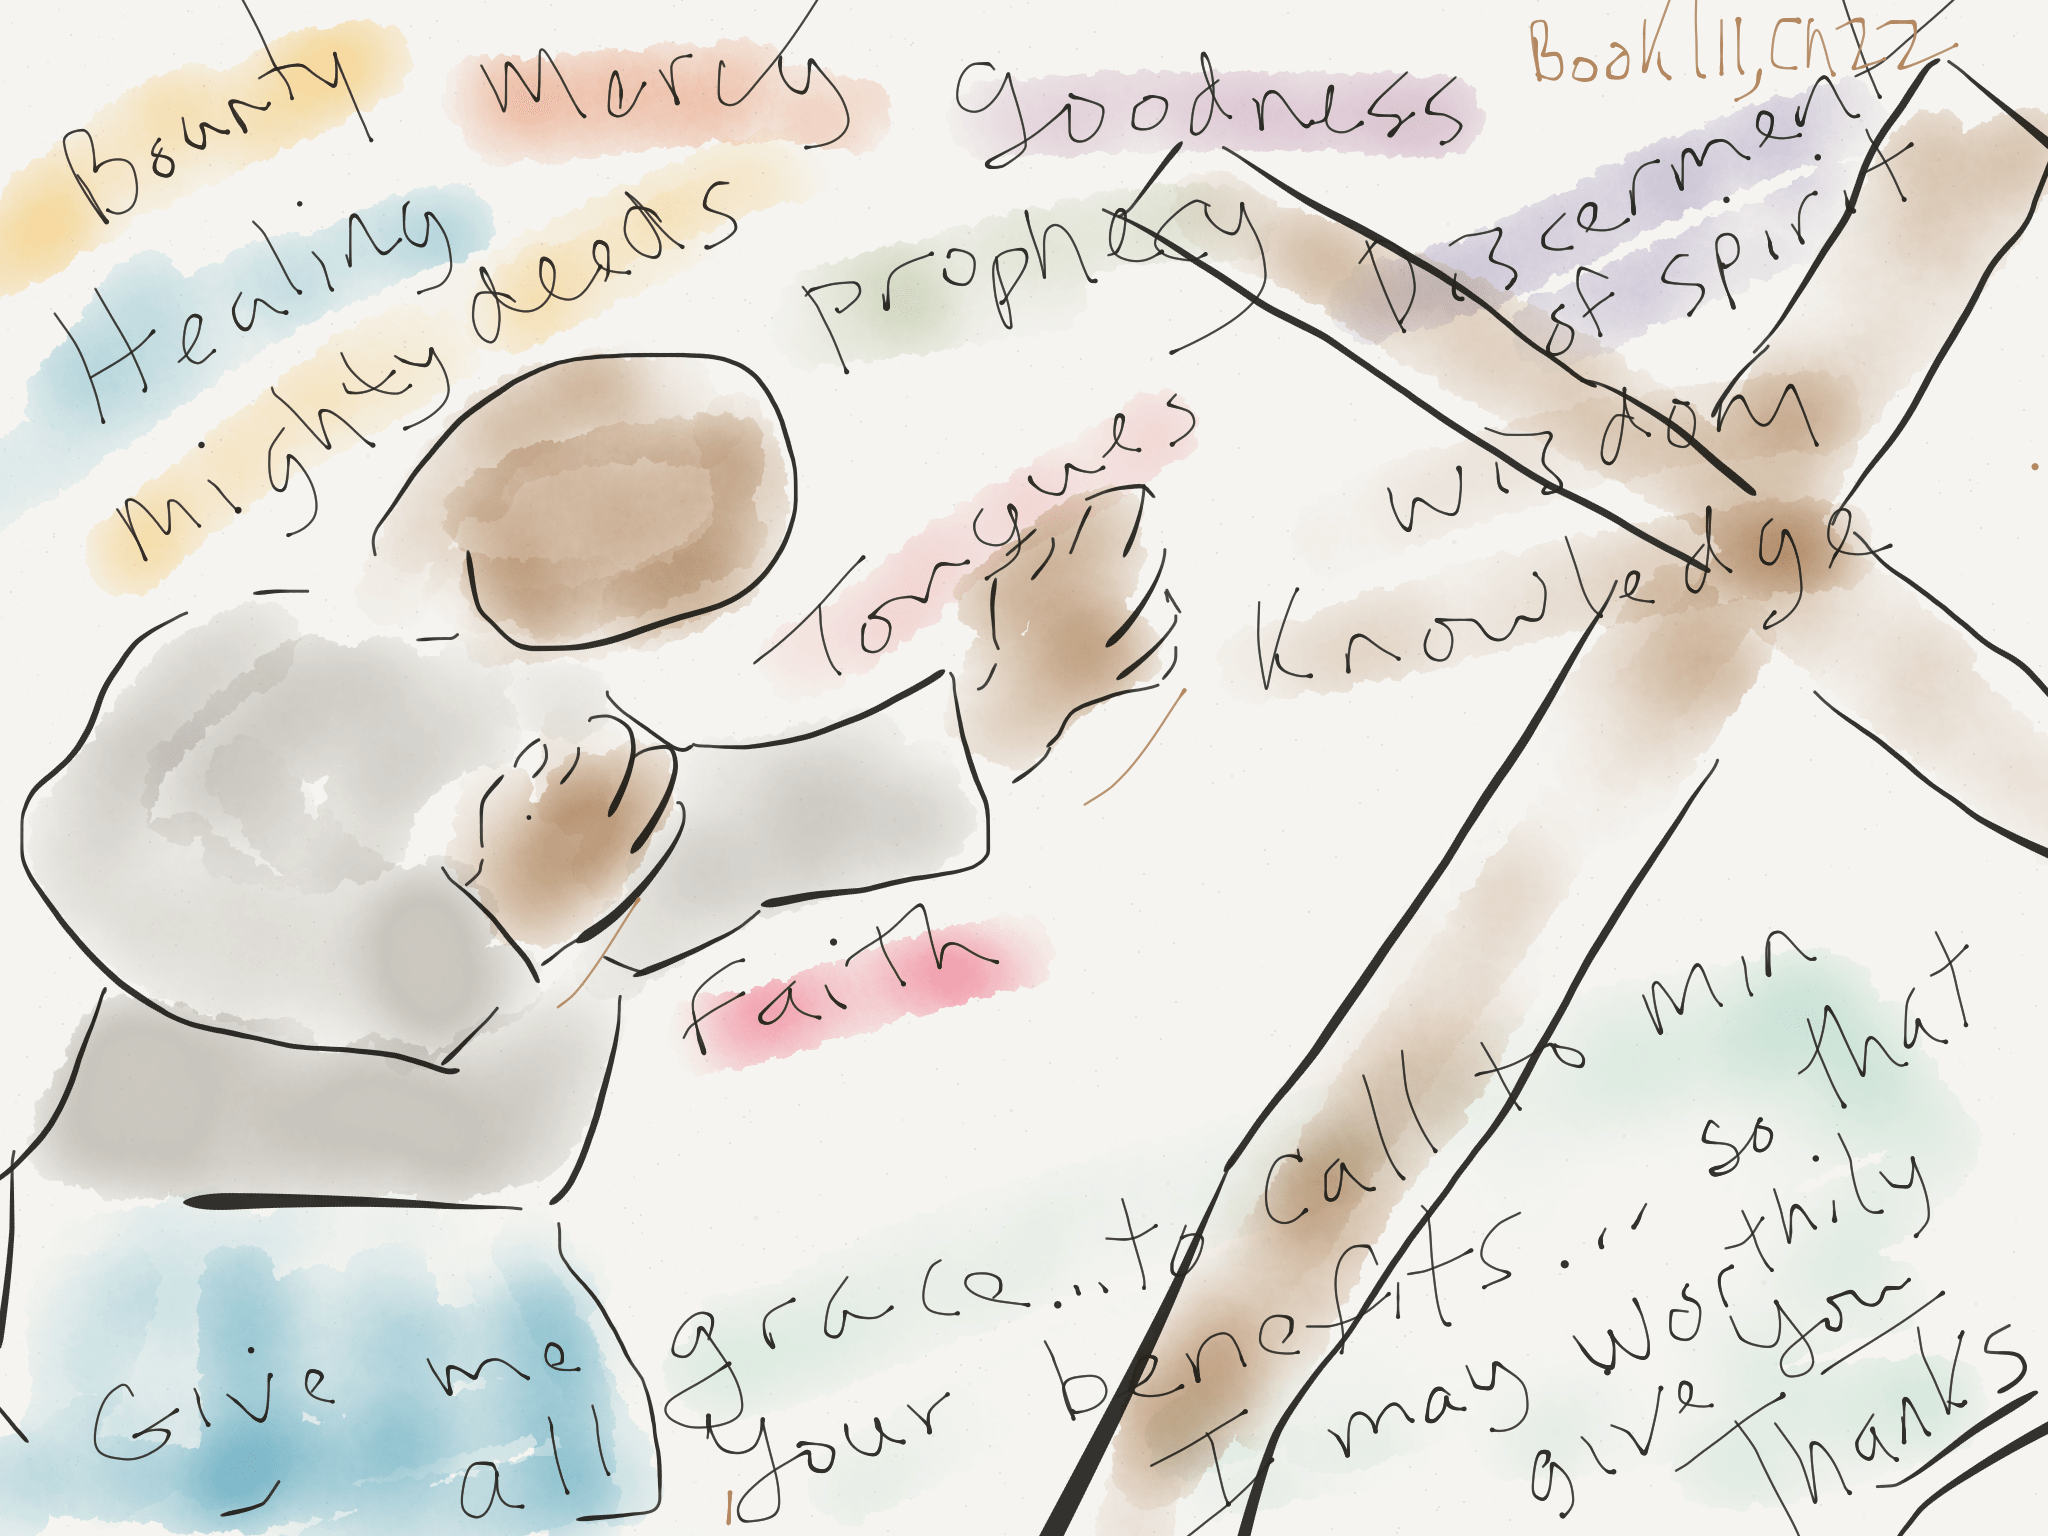 Book III, Ch 22
Bounty Mercy Goodness
Healing
Mighty deeds
Prophecy
Discernment
of spirit
Tongues
Wisdom
Knowledge
Faith
Give me grace... to call to min
all your benefits... so that
I may worthily
give you
Thanks